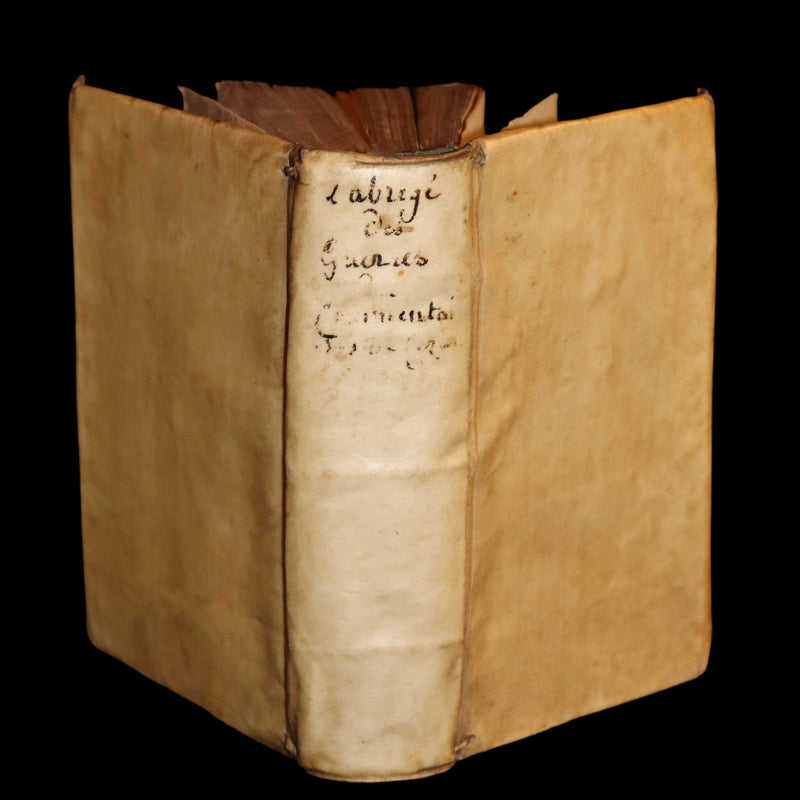 L'abregé
des
Guerres
Commentai